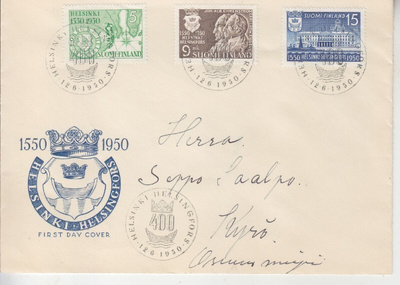 HELSINKI
1550 1950
5
SUOMI FINLAND
9
SUOMI FINLAND
SUOMI FINLAND 15
1550 HELSINKI HELSINGFORS 1950
HELSINKI HELSINGFORS
400
12.6.1950
HELSINKI HELSINGFORS
12.6.1950
HELSINKI HELSINGFORS
12.6.1950
1550 1950
HELSINKI · HELSINGFORS
FIRST DAY COVER
Herra
Seppo Saalpo
HELSINKI HELSINGFORS
400
12.6.1950
Kyrö